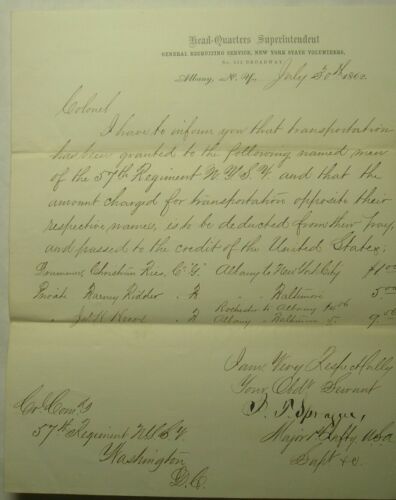 Head-Quarters Superintendent
GENERAL RECRUITING SERVICE, NEW YORK STATE VOLUNTEERS,
No. 512 BROADWAY
Albany, N. Y., July 30th 1862.
Colonel
I have to inform you that transportation
has been granted to the following named men
of the 57th Regiment N.Y.S.V. and that the
amount charged for transportation opposite their
respective names, is to be deducted from their pay,
and passed to the credit of the United States:
Drummer, Christian Ries, Co "G" Albany to New York City $1.00
Private Harvey " " Baltimore 5.00
" Jas. K. " Rochester to Albany $4.06
Albany " Baltimore 5. 9.06
I am Very Respectfully
Your Obdt Servant
J. T. Sprague,
Major 1st Infty USA
Supt &c.
Co. Comdg
57th Regiment N.Y.S.V.
Washington
D.C.